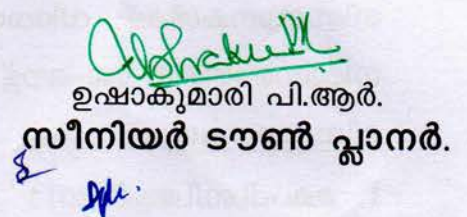 ഉഷാകുമാരി പി.ആർ.
സീനിയർ ടൗൺ പ്ലാനർ.